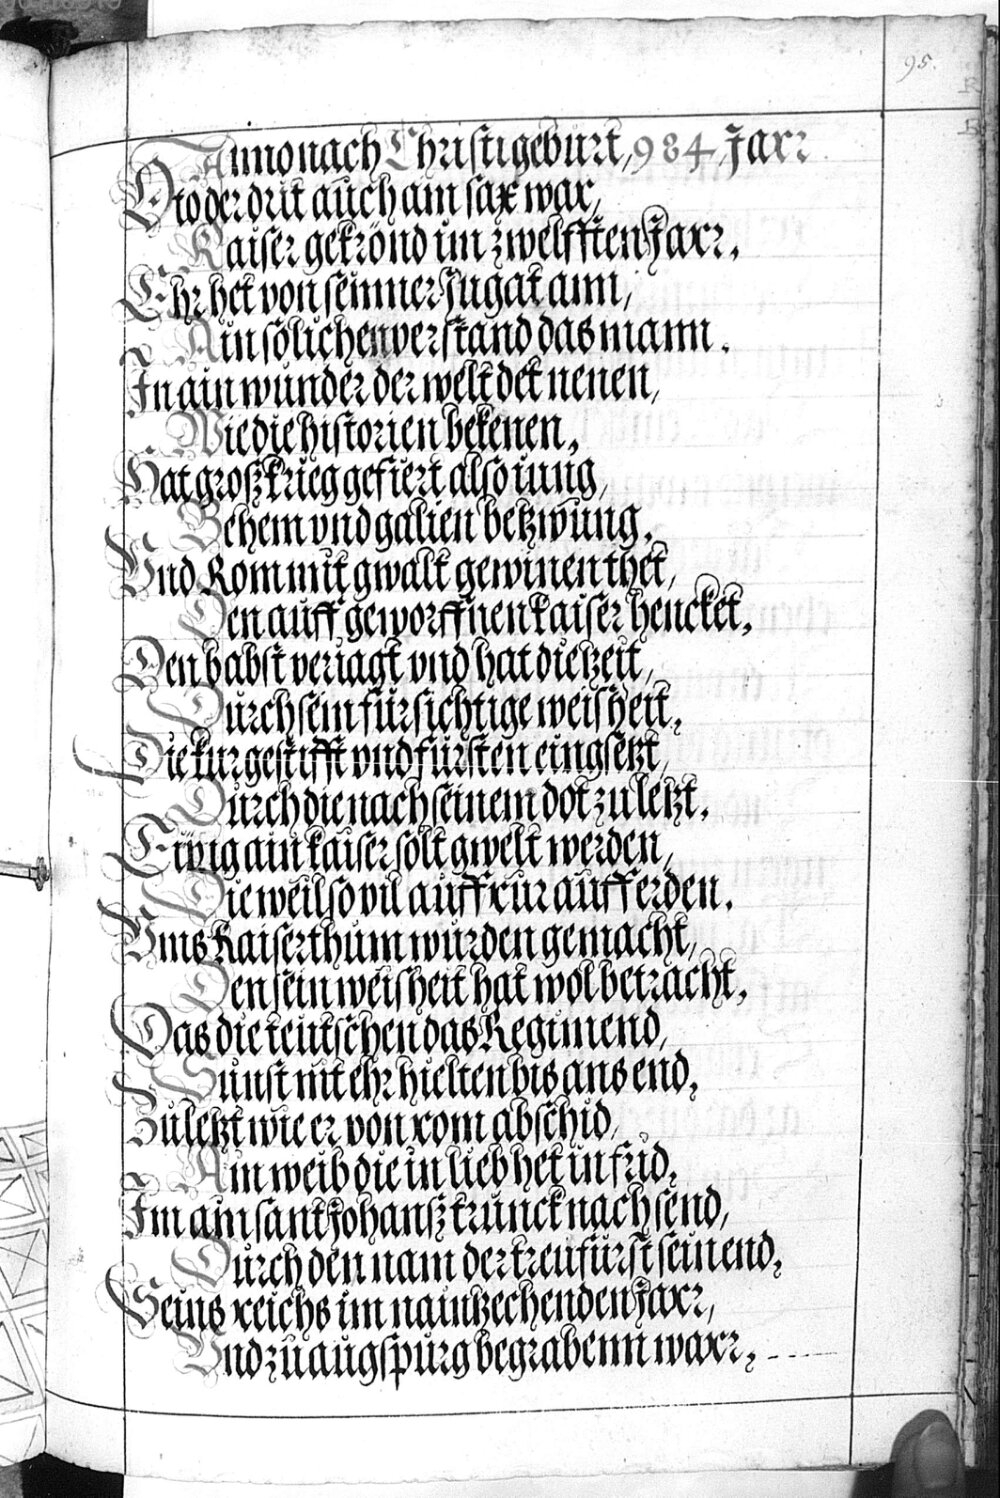 95.
Anno nach Christi geburt, 984, Jarr
Oto der drit auch am sax war,
Kaiser gekrönd im zwelfften Jarr,
Ehr het von seinner Jugat ann,
Ain solichen verstand das mann.
In ain wunder der welt det nenen,
Wie die historien bekenen,
Hat grosz krieg gefiert also iung,
Behem vnd galien betzwung,
Vnd Rom mit gwalt gewinen thet,
Den auff geworffnen kaiser hencket,
Den babst veriagt vnd hat die tzeit,
Durch sein fürsichtige weisheit,
Die kur gestifft vnd fürsten eingsetzt,
Durch die nach seinem dot zu letzt,
Ewig ain kaiser solt gwelt werden,
Die weil so vil auffrur auff erden.
Vms Kaiserthum wurden gemacht,
Den sein weisheit hat wol betracht,
Das die teutschen das Regimend,
Sunst nit ehr hielten bis ans end,
Zu letzt wie er von rom abschid,
Am weib die in lieb het in frid,
Im ain sankt Johansz trunck nach send,
Durch den nam der treu fürst sein end,
Seins reichs im naintzechenden Jarr,
Vnd zu augspurg begrabenn warr,